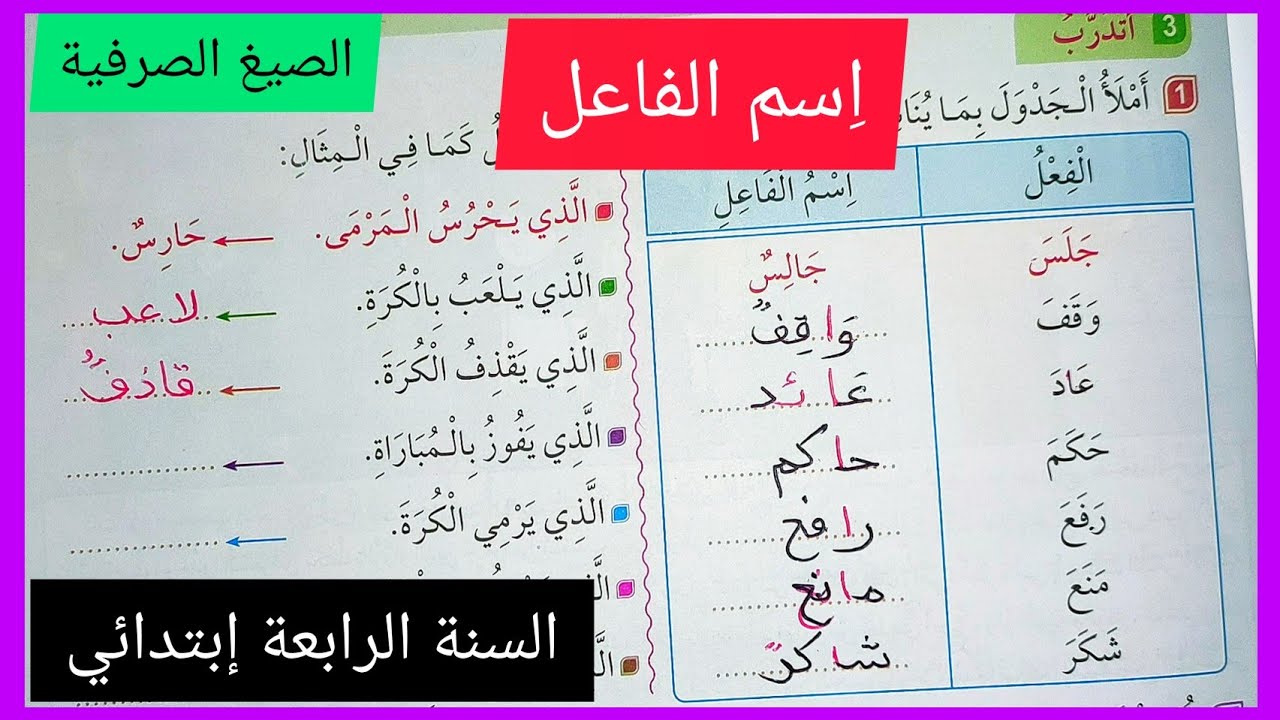 الصيغ الصرفية
اِسم الفاعل
3 أَتَدَرَّبُ
1 أَمْلَأُ الْجَدْوَلَ بِمَا
الْفِعْلُ اِسْمُ الْفَاعِلِ
جَلَسَ جَالِسٌ
وَقَفَ وَاقِفٌ
عَادَ عَائد
حَكَمَ حاكم
رَفَعَ رافع
مَنَعَ مانع
شَكَرَ شاكر
كَمَا فِي الْمِثَالِ:
الَّذِي يَحْرُسُ الْمَرْمَى. ← حَارِسٌ.
الَّذِي يَلْعَبُ بِالْكُرَةِ. ← لاعب
الَّذِي يَقْذِفُ الْكُرَةَ. ← قاذفٌ
الَّذِي يَفُوزُ بِالْمُبَارَاةِ. ← ................
الَّذِي يَرْمِي الْكُرَةَ. ← ................
السنة الرابعة إبتدائي